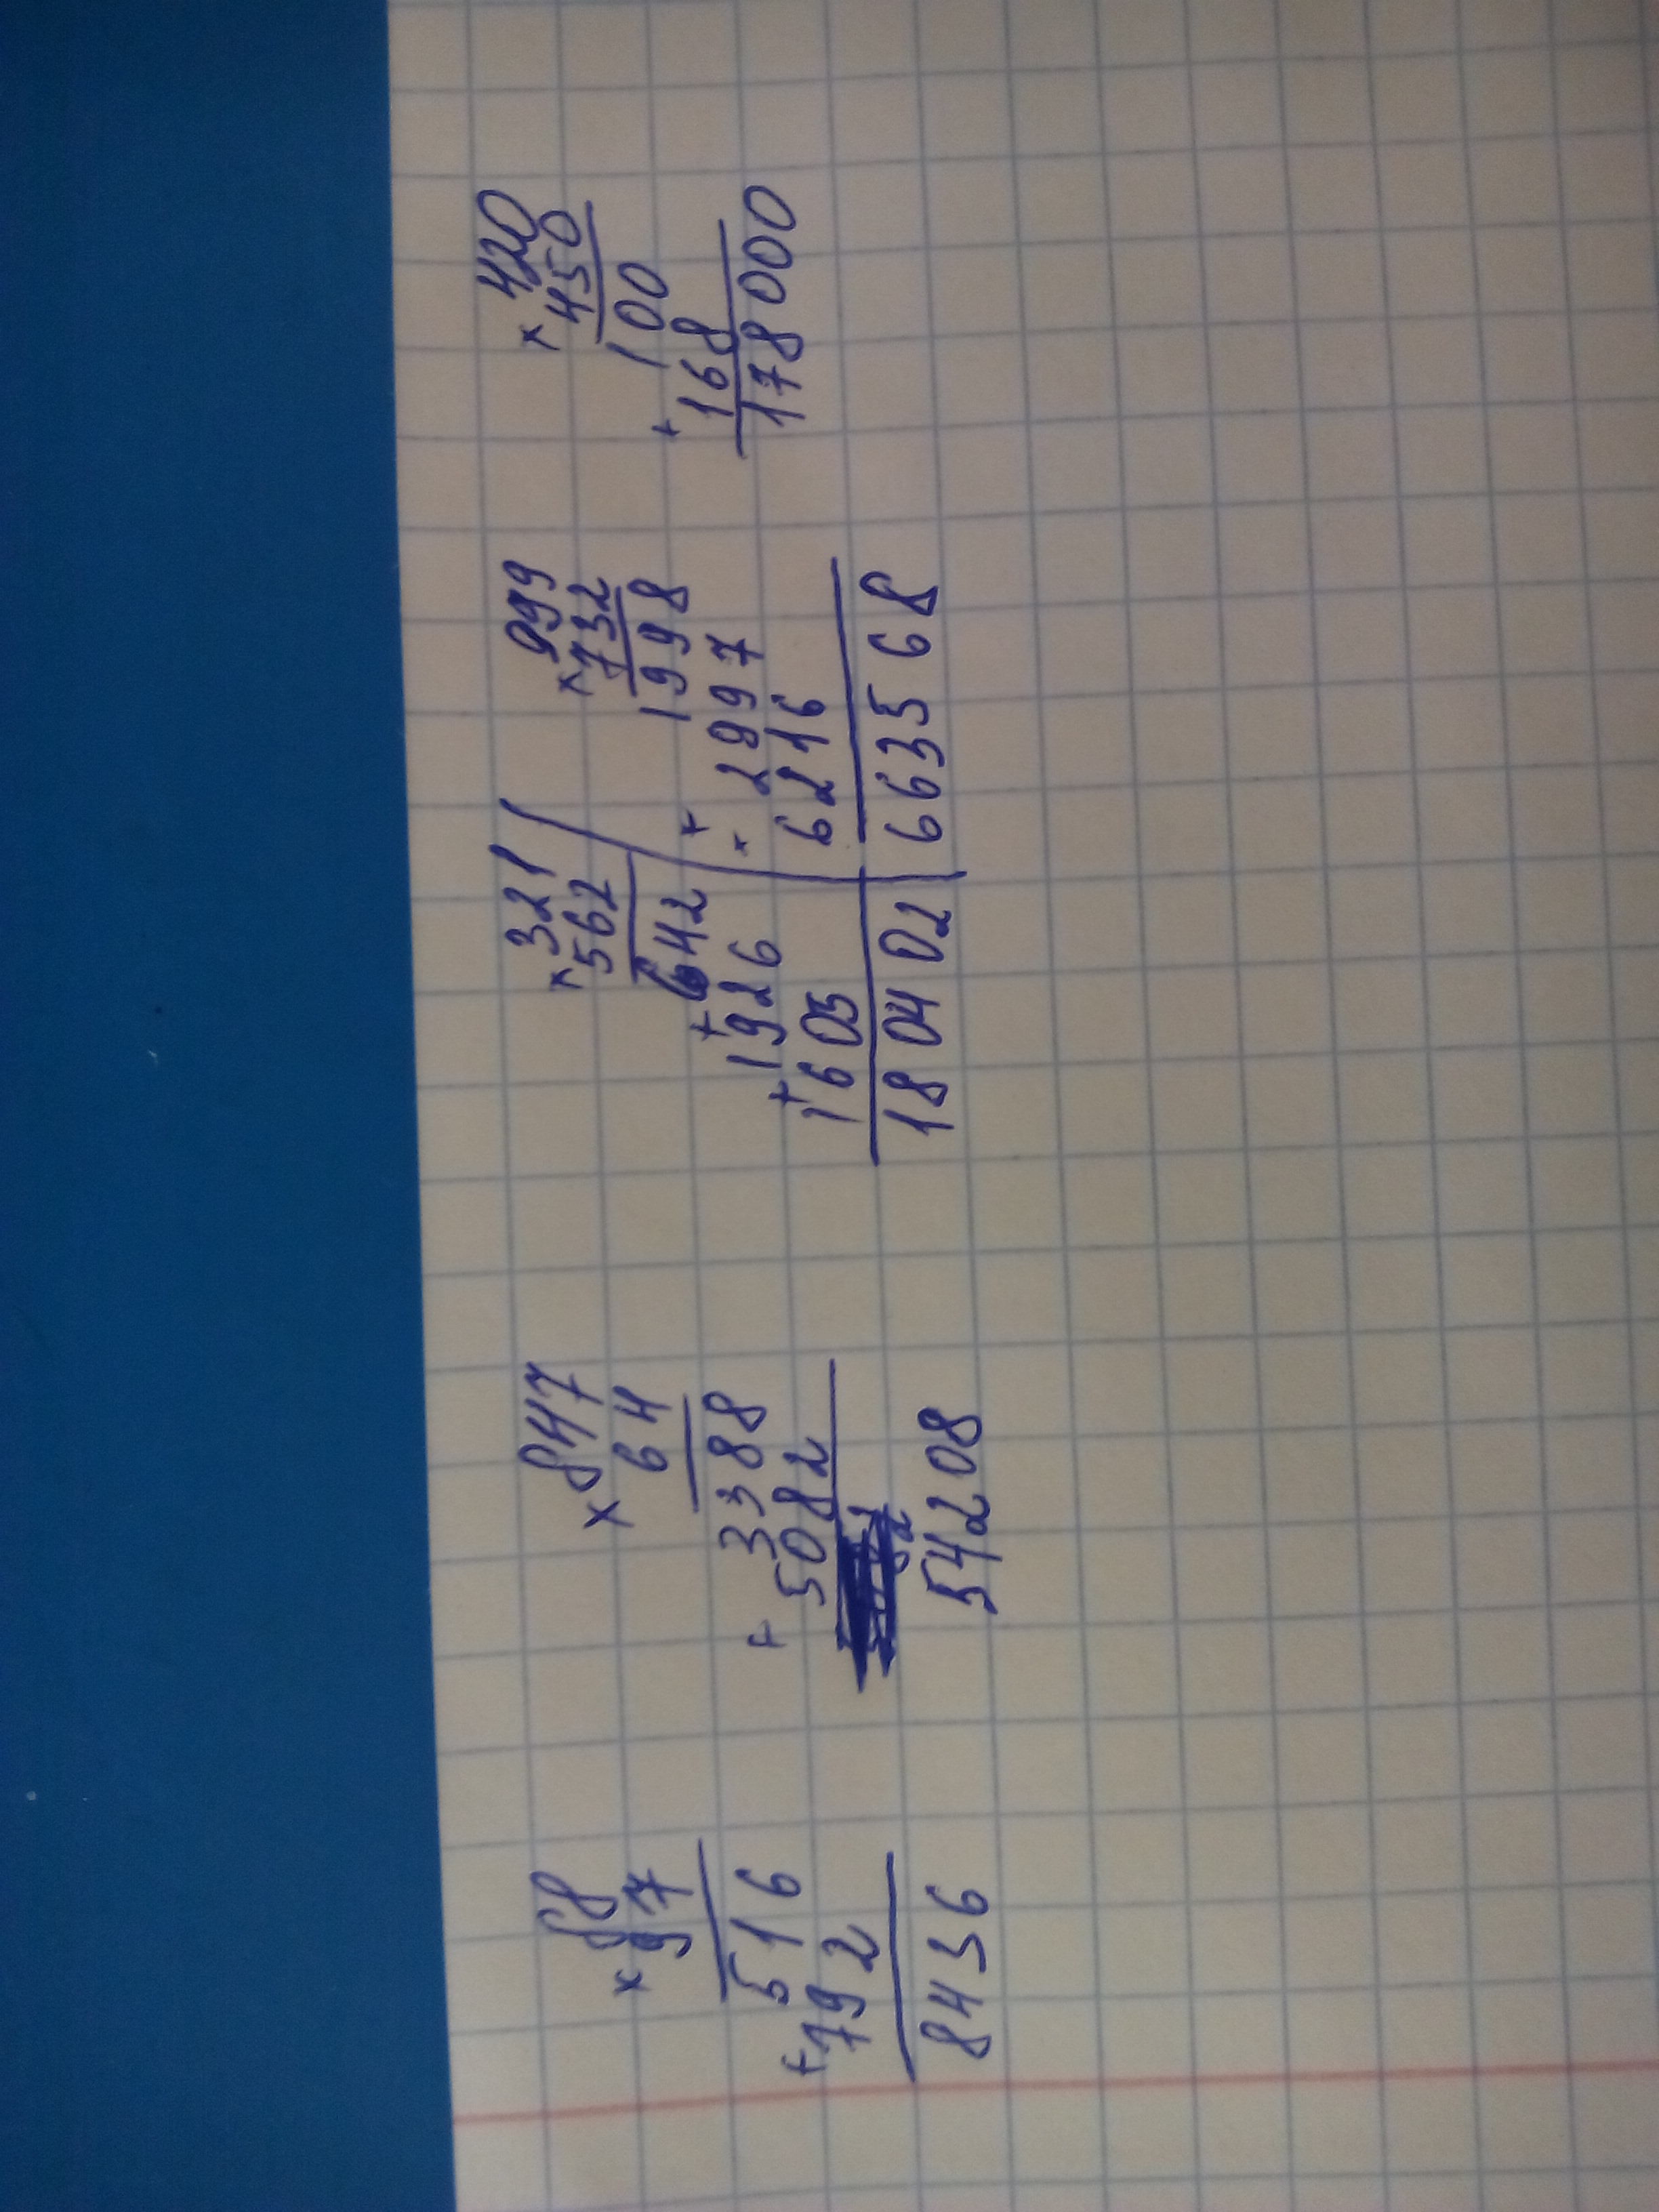 88
×97
516
+792
8436
×847
64
3388
+5082
54208
×321
×562
+642
+1926
1603
180402
999
×732
1998
+2997
6216
663568
420
×450
100
+168
178000